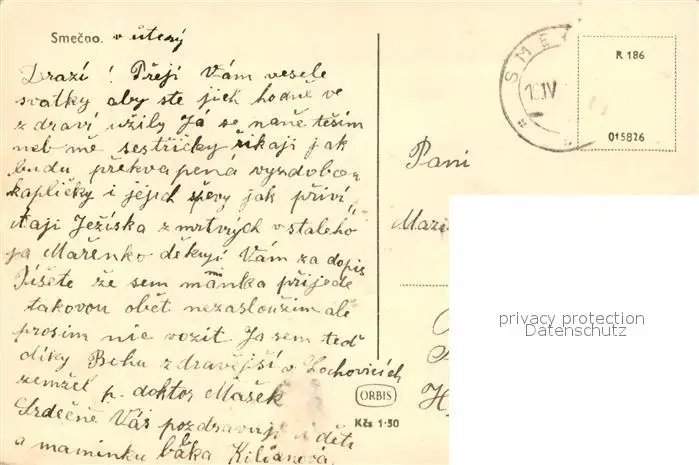 Smečno. v úterý
Drazí ! Přeji Vám vesele
svatky aby ste jich hodně ve
zdraví užily Já se naně těším
neb mě sestřičky říkaji jak
budu překvapená vyzdobou
kapličky i jejich spěvy jak přiví
taji Ježiska z mrtvých vstaleho
ja Mařenko děkuji Vám za dopis
Píšete že sem maminka přijede
takovou obět nezasloužim ale
prosim nic vozit. Ja sem teď
díky Bohu zdravější v Lochovicích
zemžel p. doktor Mašek
Srdečně Vás pozdravuji i děti
a maminku Kilianová.
SME
18.IV
R 186
015826
Paní
Mari
ORBIS
Kčs 1·50
privacy protection
Datenschutz